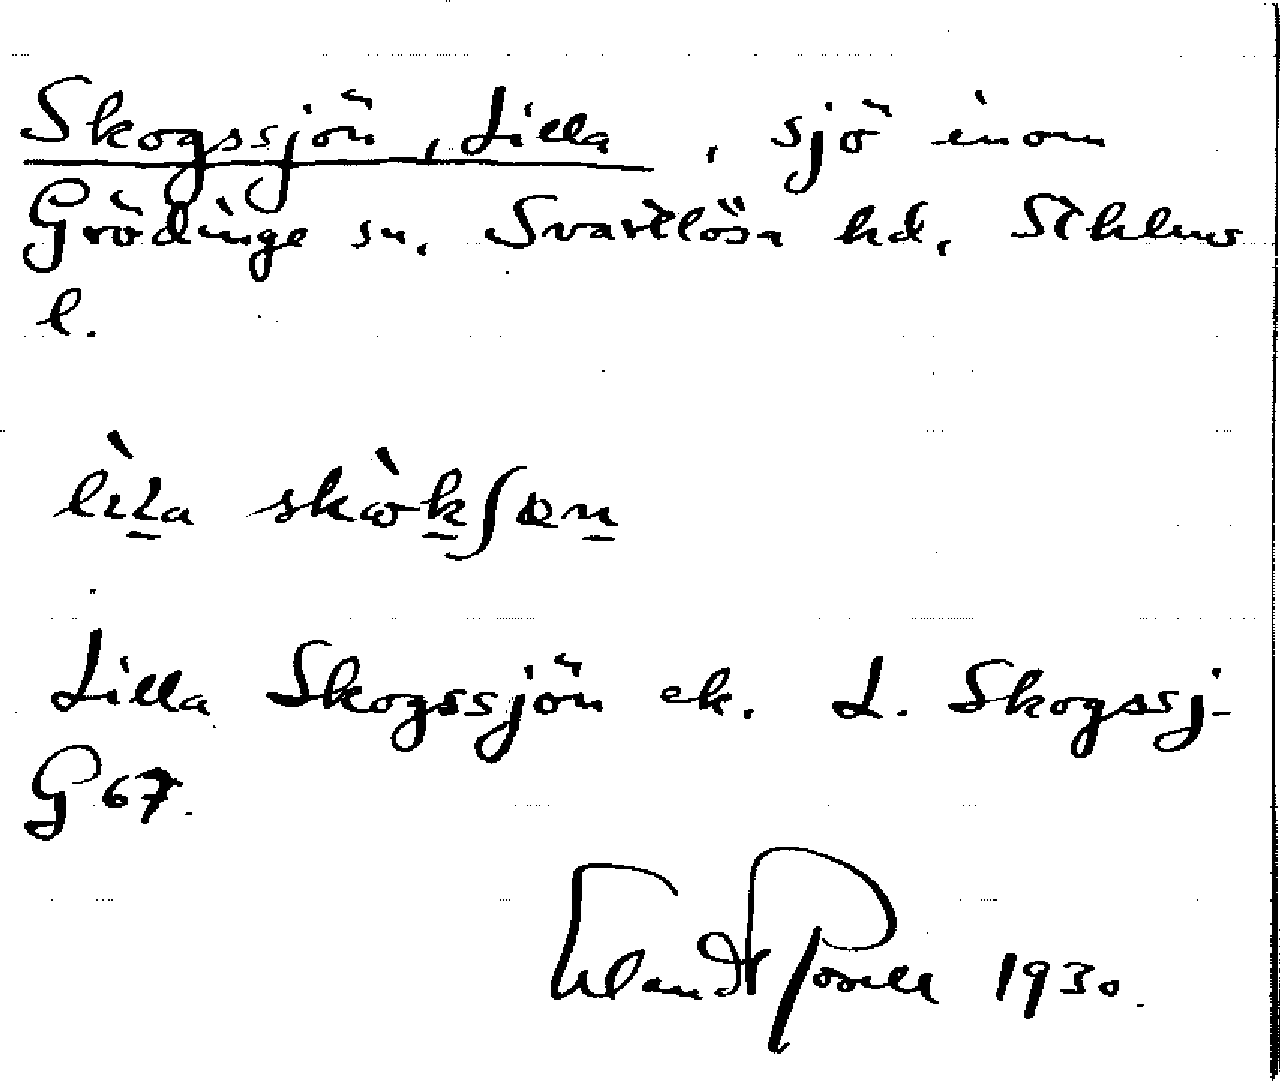 Skogssjön, Lilla, sjö inom
Grödinge sn. Svartlösa hd. Sthlms
l.
lìḷa skò̀ḵʃøṉ
Lilla Skogssjön ek. L. Skogssj-
G 67.
1930.